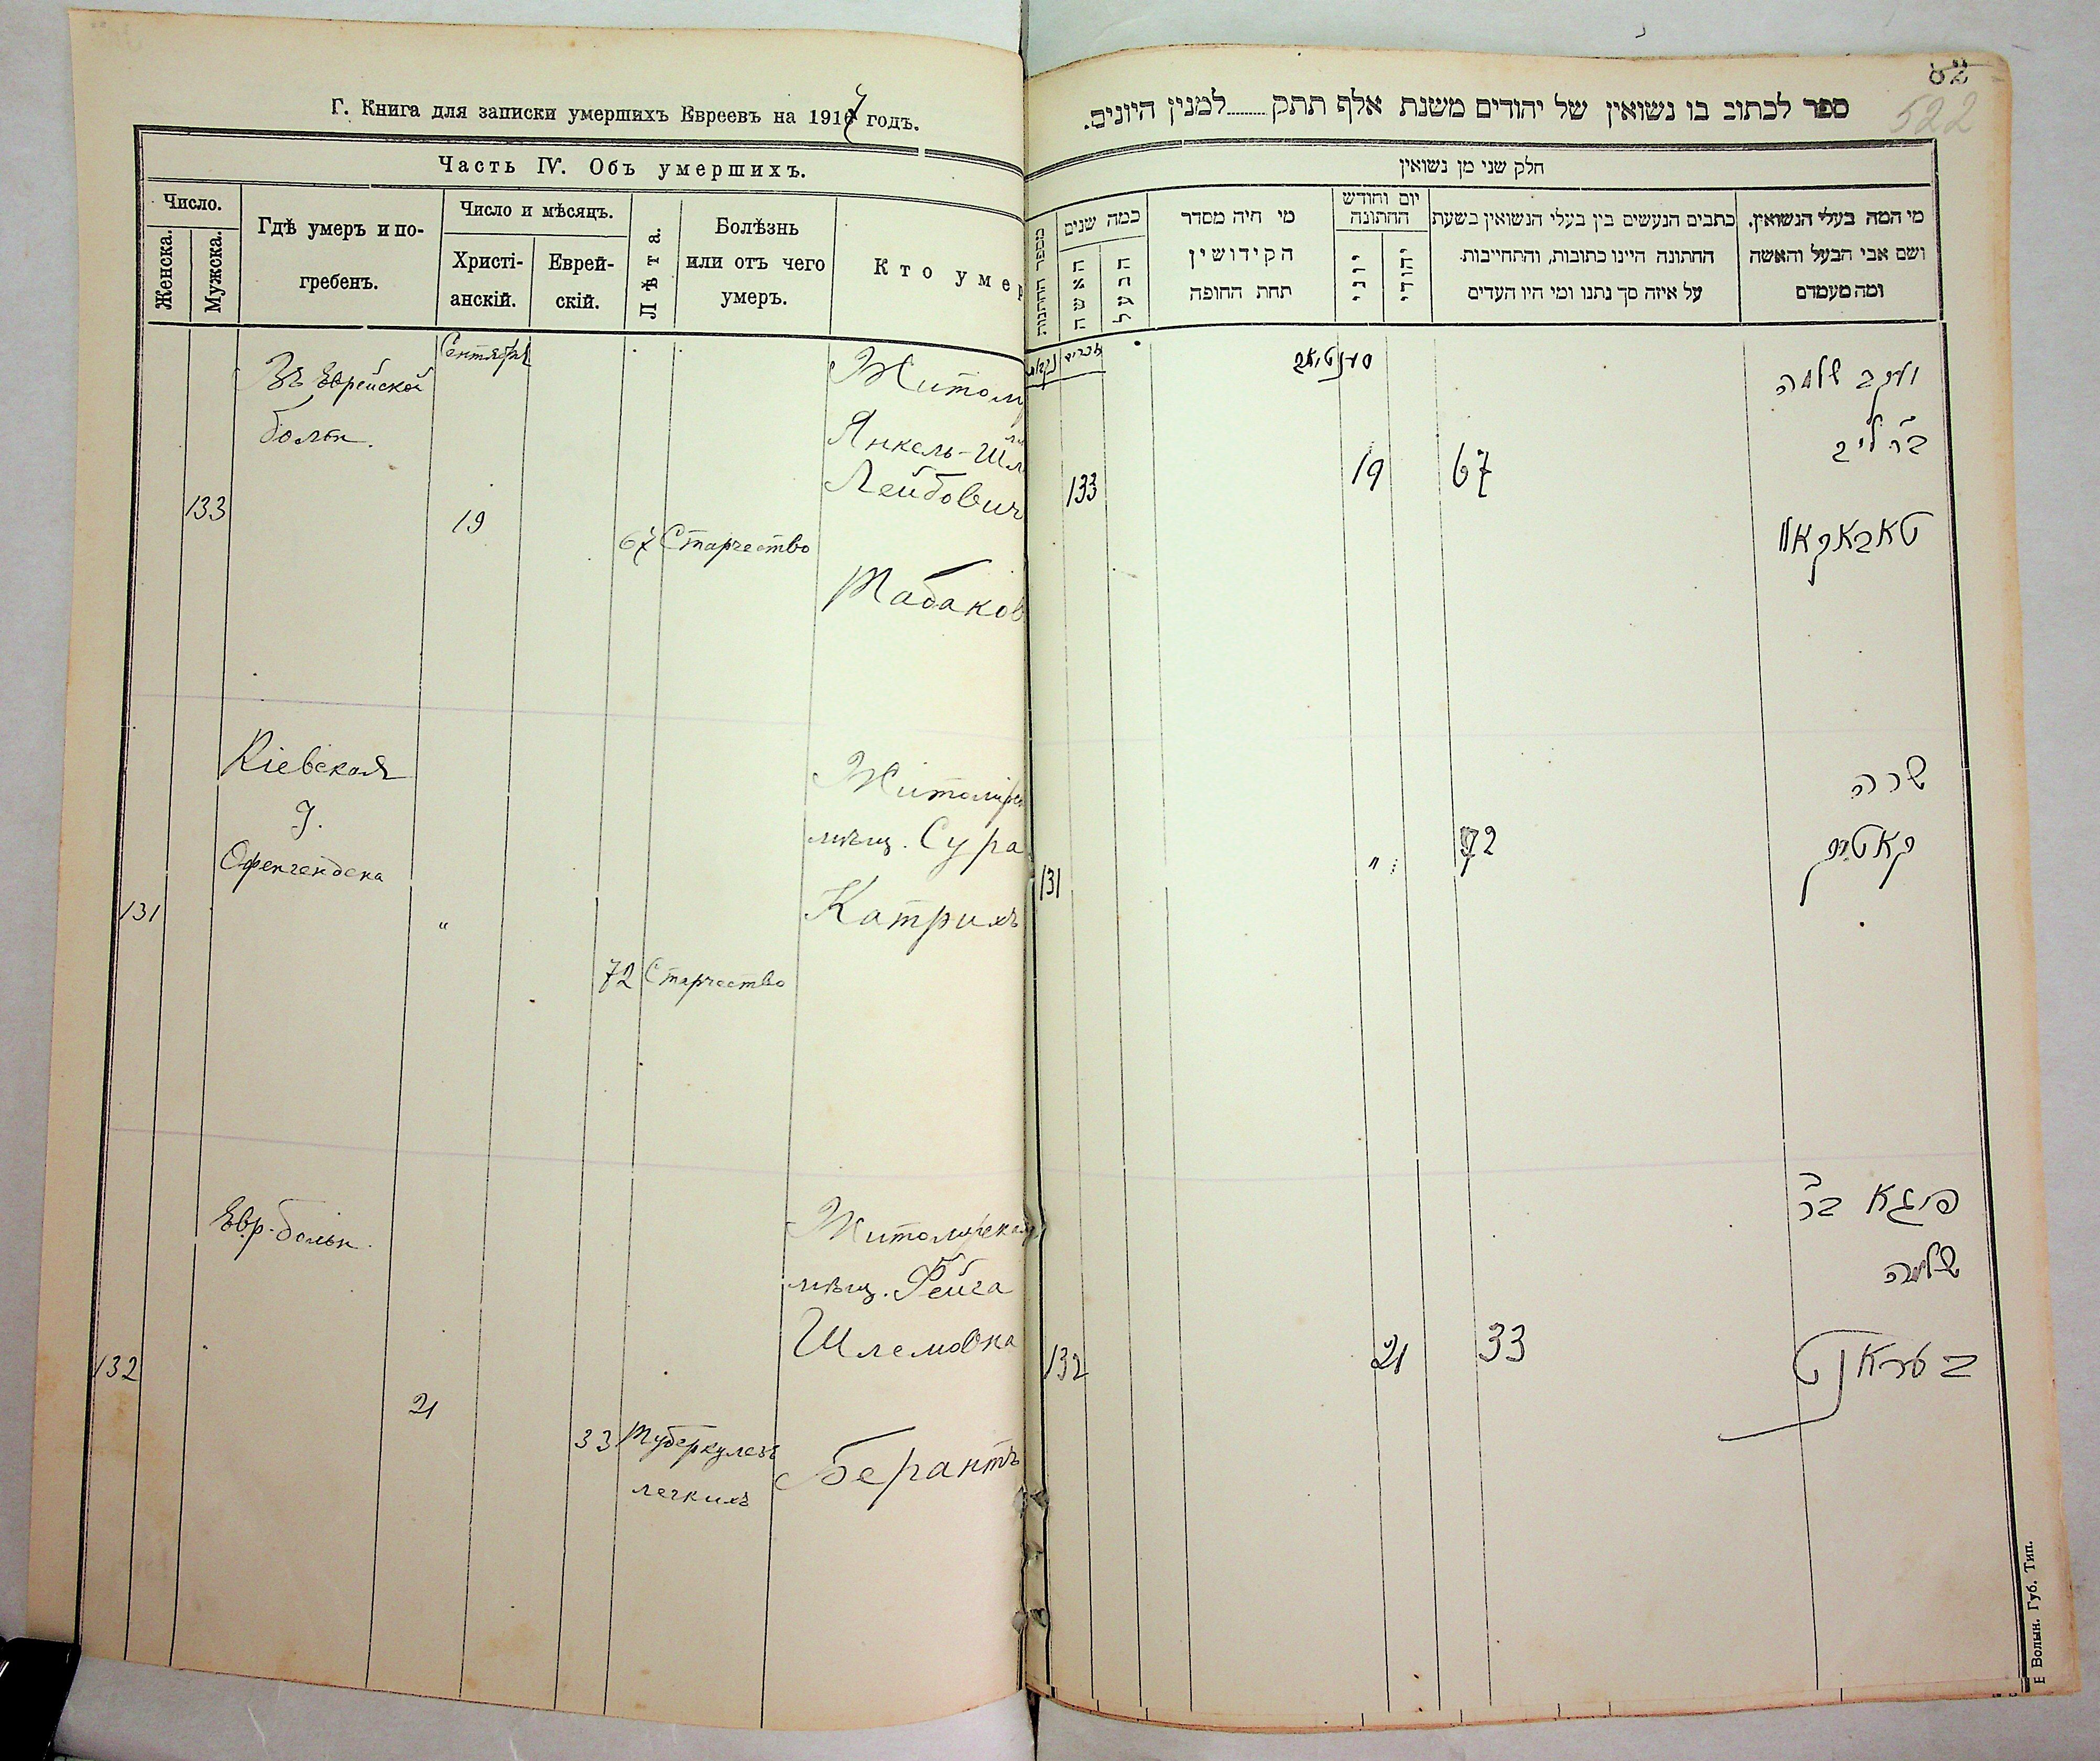 Г. Книга для записки умершихъ Евреевъ на 1917 годъ.
Часть IV. Объ умершихъ.
Число.
Женска.
Мужска.
Гдѣ умеръ и по-
гребенъ.
Число и мѣсяцъ.
Христі-
анскій.
Еврей-
скій.
Лѣта.
Болѣзнь
или отъ чего
умеръ.
Кто умер
Сентября
Въ Еврейской
больн.
Житом
Янкель-Шл
Лейбович
133
19
67 Старчество
Табаков
Кіевская
Житомірск
мѣщ. Сура
131
"
Катрихъ
72 Старчество
Евр. больн.
Житомірская
мѣщ. Фейга
Шлемовна
132
21
33 Туберкулезъ
легкихъ
Берантъ
522
ספר לכתוב בו נשואין של יהודים משנת אלף תתק........למנין היונים.
חלק שני מן נשואין
מספר החתנות
כמה שנים
האשה
הבעל
מי היה מסדר
הקידושין
תחת החופה
יום וחודש
החתונה
יוני
יהודי
כתבים הנעשים בין בעלי הנשואין בשעת
החתונה היינו כתובות, והתחייבות
על איזה סך נתנו ומי היו העדים
מי המה בעלי הנשואין.
ושם אבי הבעל והאשה
ומה מעמדם
יעקב שלמה
ב"ר ליב
133
19
67
טאבאקאוו
שרה
131
"
72
קאטריך
פייגא ב"ר
שלמה
132
21
33
בעראנט
Волын. Губ. Тип.